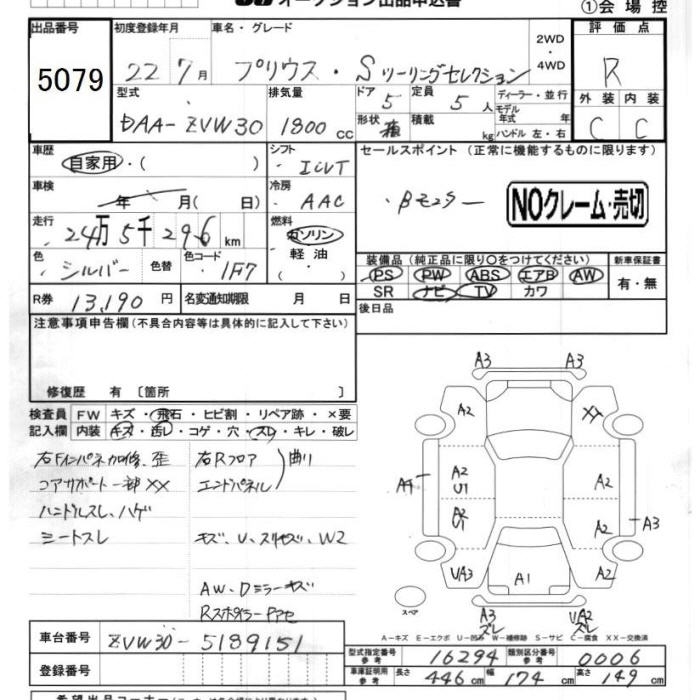 オークション出品申込書
①会場控
出品番号
5079
初度登録年月
22 7月
車名・グレード
プリウス・Sツーリングセレクション
2WD
・4WD
評価点
R
型式
DAA-ZVW30
排気量
1800 cc
ドア 5
形状
定員 5人
積載 kg
ディーラー・並行
モデル年式 年
ハンドル 左・右
外装 内装
C C
車歴
自家用・( )
シフト
ICVT
セールスポイント (正常に機能するものに限ります)
・βモニター
NOクレーム・売切
車検
年 月( 日)
冷房
AAC
走行
24万5千296km
燃料
ガソリン
軽油
・( )
色
シルバー
色替
色コード
1F7
装備品 (純正品に限り○をつけてください)
PS PW ABS エアB AW
SR ナビ TV カワ
新車保証書
有・無
R券 13,190円
名変通知期限 月 日
後日品
注意事項申告欄(不具合内容等は具体的に記入して下さい)
修復歴 有 〔箇所 〕
検査員記入欄
FW キズ・飛石・ヒビ割・リペア跡・×要
内装 キズ・汚レ・コゲ・穴・スレ・キレ・破レ
右Fインパネ加修、歪
コアサポート一部XX
ハンドルスレ、ハゲ
シートスレ
右Rフロア
エンドパネル
曲り
キズ、U、スリキズ、W2
AW・Dミラーキズ
A3 A3
A2 XX
A2 U1 A2
A2 U1 A2
A3
UA3 A1 A2
スペア
A3 ズレ UA2 ズレ
A-キズ E-エクボ U-凹み W-補修跡 S-サビ C-腐食 XX-交換済
車台番号
ZVW30-5189151
登録番号
型式指定番号 参考 16294
類別区分番号 参考 0006
車庫証明用 参考 長さ 446cm 幅 174cm 高さ 149cm
希望出品コーナー